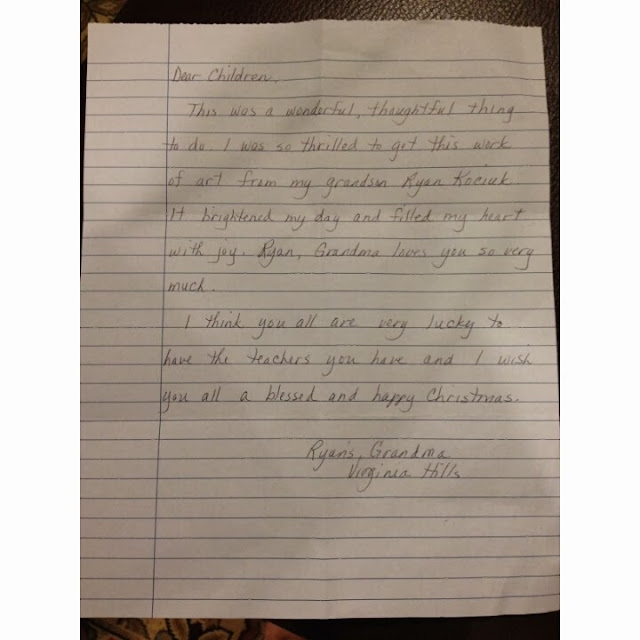 Dear Children,
This was a wonderful, thoughtful thing
to do. I was so thrilled to get this work
of art from my grandson Ryan Kociuk.
It brightened my day and filled my heart
with joy. Ryan, Grandma loves you so very
much.
I think you all are very lucky to
have the teachers you have and I wish
you all a blessed and happy Christmas.
Ryan's, Grandma
Virginia Hills